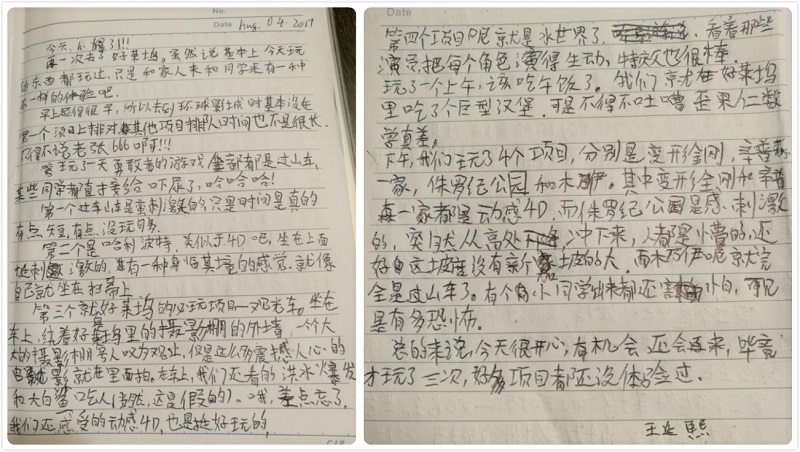 No.
Date Aug. 04. 2017
今天,不得了!!!
再一次去了好莱坞。虽然说基本上今天玩
的东西都玩过,只是和家人来和同学来有一种
不一样的体验吧。
早上起得很早,所以去到环球影城时基本没在
第一个项目上排对,其他项目排队时间也不是很长。
不得不说老张666啊!!!
第玩了一天勇敢者的游戏,全部都是过山车,
某些同学都直接给吓尿了,哈哈哈!
第一个过车山车是蛮刺激的,只是时间是真的
有点短,有点没玩够。
第二个是哈利波特,类似于4D吧,坐在上面
挺刺激的,具有一种身临其境的感觉,就像
自己就坐在扫帚上
第三个就好莱坞的必玩项目—观光车。坐在
车上,绕着好莱坞里的摄影棚的外墙,一个大
大的摄影棚另人叹为观止,但是这么而震撼人心的
电影就在里面拍。在车上,我们还看的洪水爆发
和大白鲨吃人(当然,这是假的)。哦,差点忘了,
我们还感受的动感4D,也是挺好玩的,
Date
第四个项目呢就是水世界了。看着那些
演员把每个角色演得生动,特效也很棒。
玩了一个上午,该吃午饭了。我们就在好莱坞
里吃了个巨型汉堡。可是不得不吐嘈歪果仁数
学真差。
下午,我们玩了4个项目,分别是变形金刚,辛普森
一家,侏罗纪公园和木乃伊。其中变形金刚和辛普
森一家都是动感4D,而侏罗纪公园是感刺激
的,突然从高处冲下来,人都是懵的,还
好自这坡度没有前个坡的大。而木乃伊呢就完
全是过山车了。有个小同学出来都还害怕,可见
是有多恐怖。
总的来说,今天很开心,有机会还会再来,毕竟
才玩了三次,好多项目都还没体验过。
王延熙